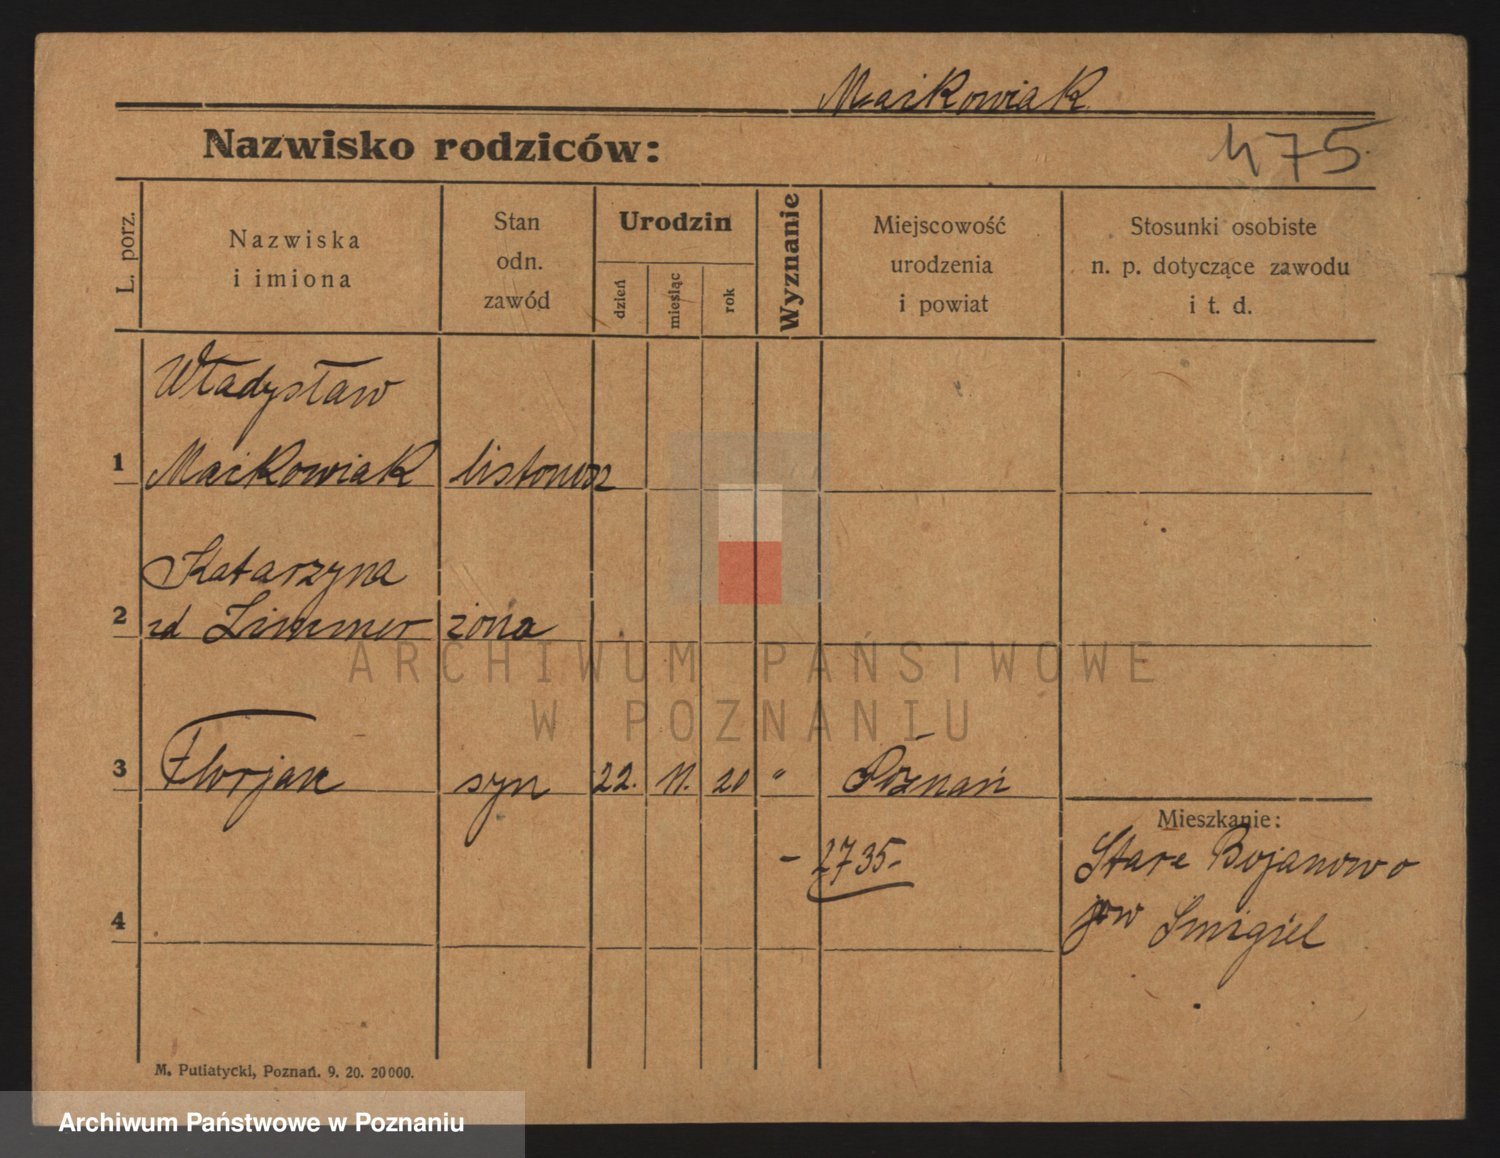 Maćkowiak
Nazwisko rodziców:
475
L. porz.
Nazwiska
i imiona
Stan
odn.
zawód
Urodzin
dzień
miesiąc
rok
Wyznanie
Miejscowość
urodzenia
i powiat
Stosunki osobiste
n. p. dotyczące zawodu
i t. d.
Władysław
1 Maćkowiak listonosz
Katarzyna
2 zd Zimmer żona
3 Florjan syn 22. 11. 20 " Poznań
Mieszkanie:
- 2735.-
Stare Bojanowo
pow Śmigiel
4
M. Putiatycki, Poznań. 9. 20. 20000.
ARCHIWUM PAŃSTWOWE
W POZNANIU
Archiwum Państwowe w Poznaniu